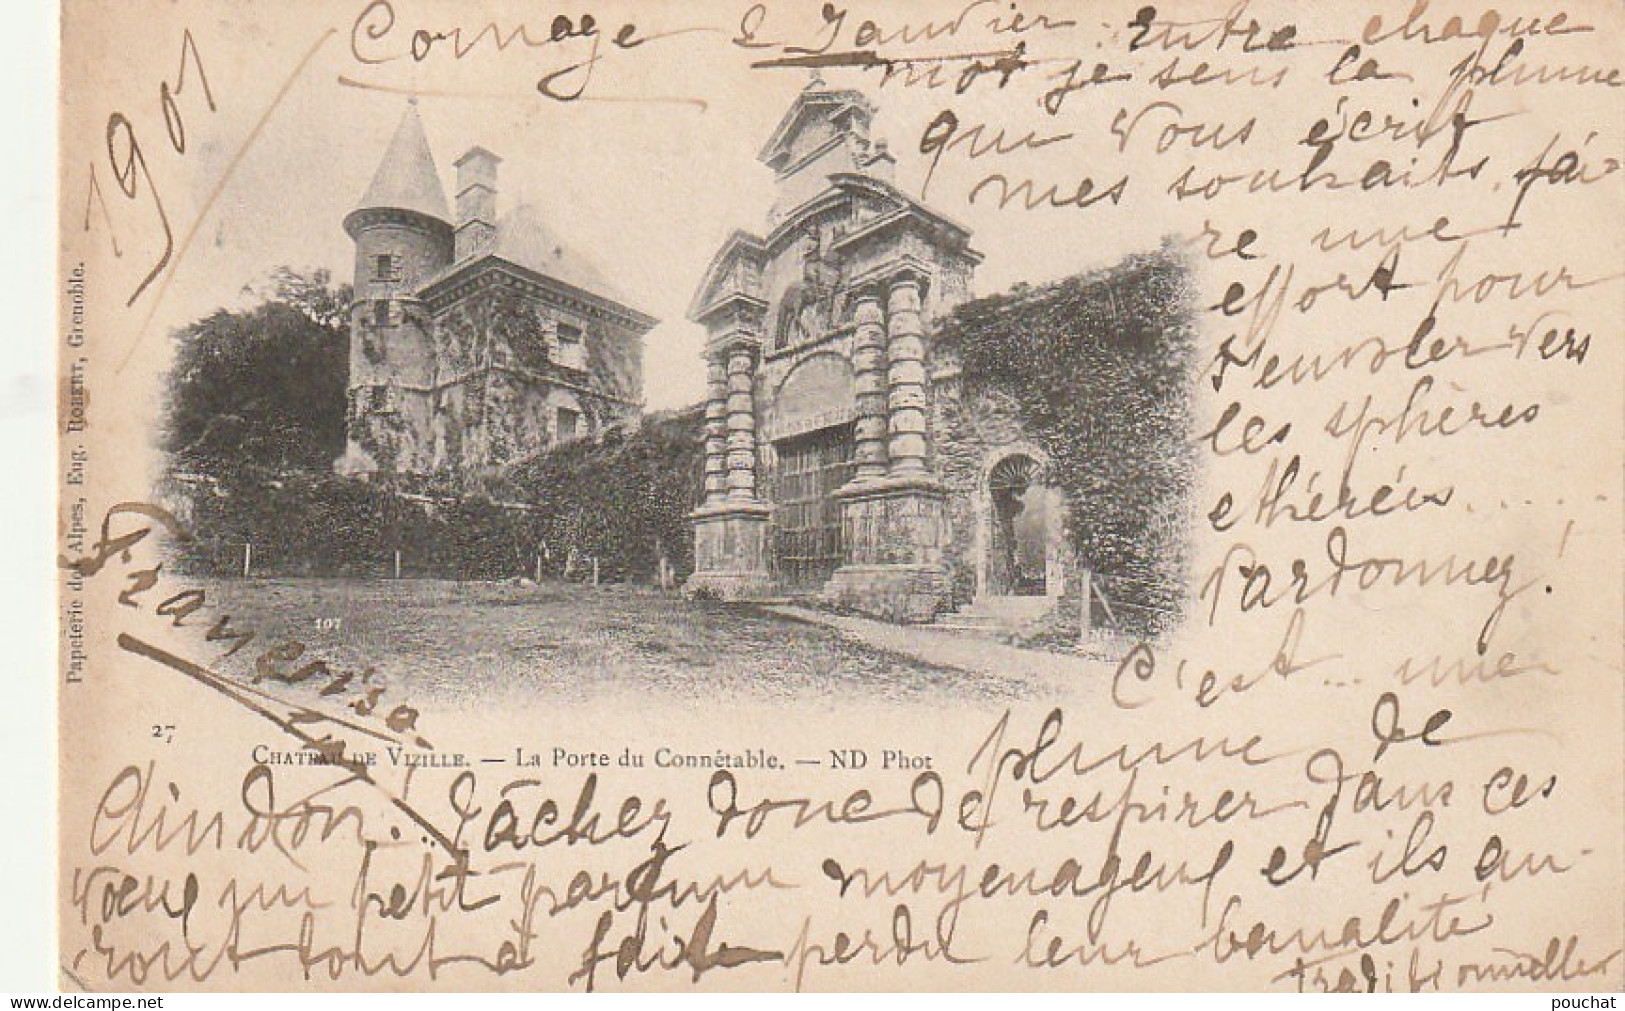 Cornage 2 Janvier. Entre chaque
1901
mot je sens la plume
qui vous écrit
mes souhaits, fai-
re une
effort pour
s'envoler vers
les sphères
ethérées.....
Pardonnez!
C'est... une
plume de
dindon! Tâchez donc de respirer dans ces
vœux un petit parfum moyenageux et ils au-
ront tout à fait perdu leur banalité
traditionnelle
Papeterie des Alpes, Eug. ROBERT, Grenoble.
107
27
CHATEAU DE VIZILLE. — La Porte du Connétable. — ND Phot
delcampe.net
pouchat